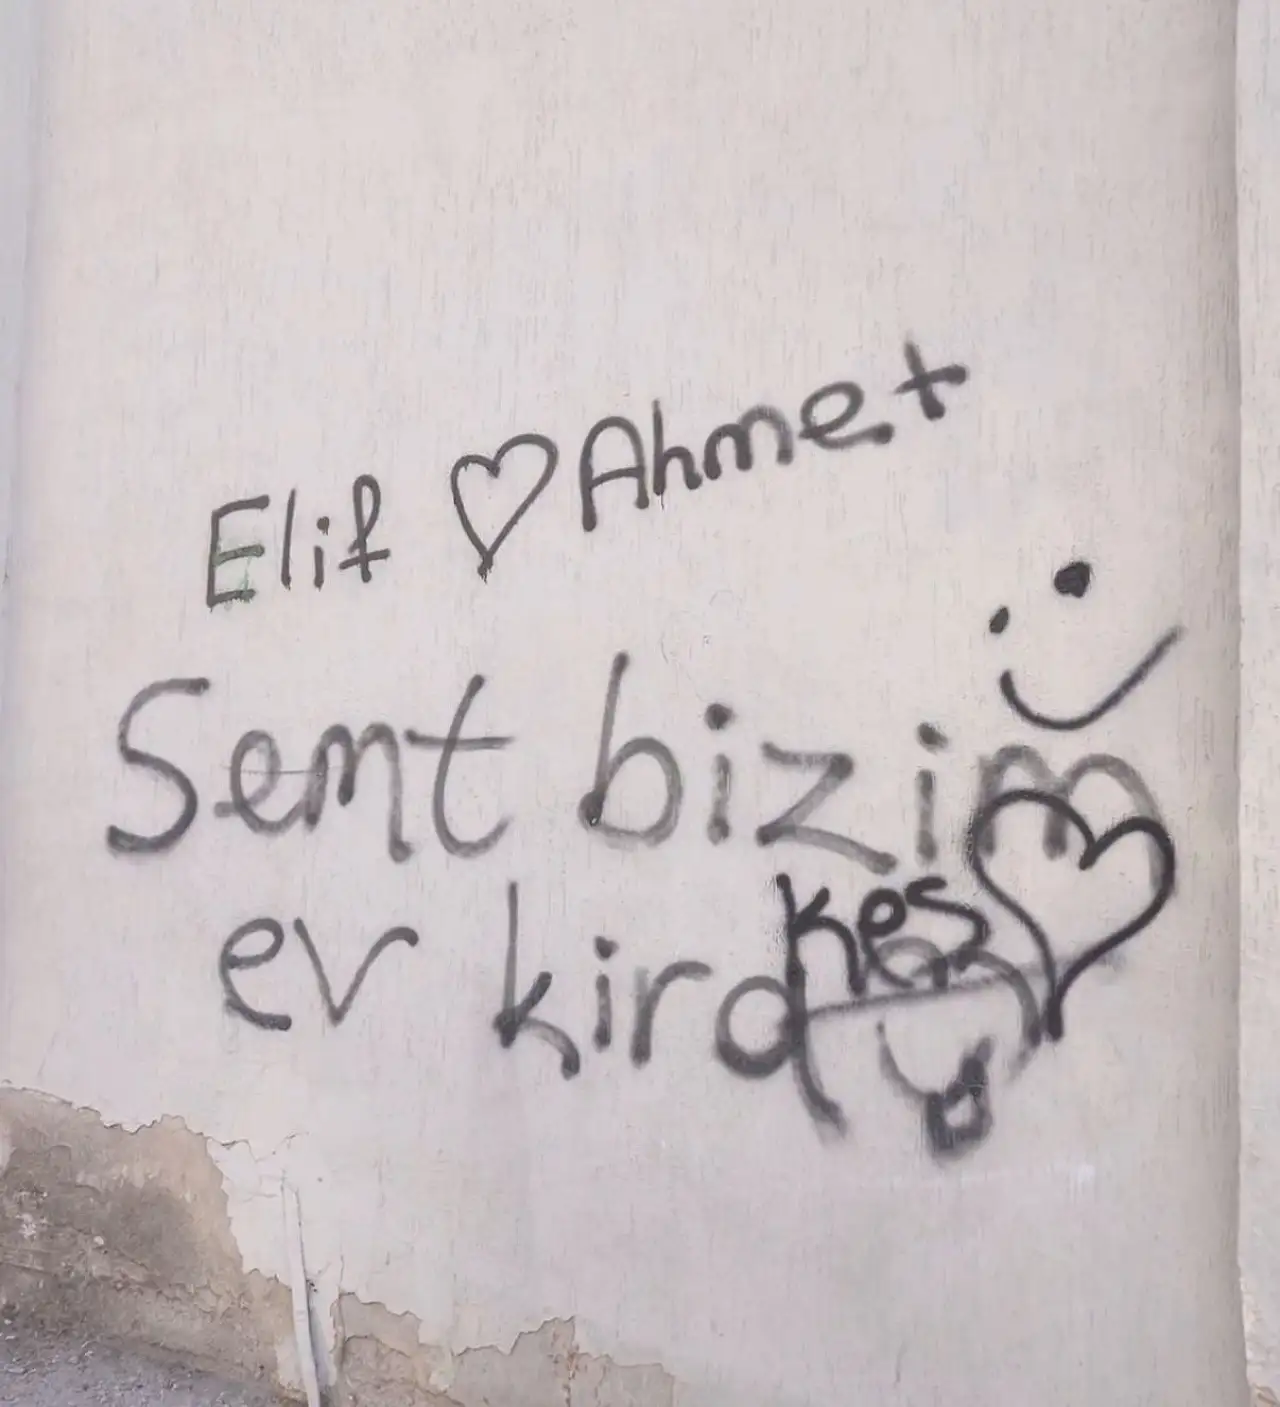 Elif ♡ Ahmet
Semt bizim
ev kira
kes